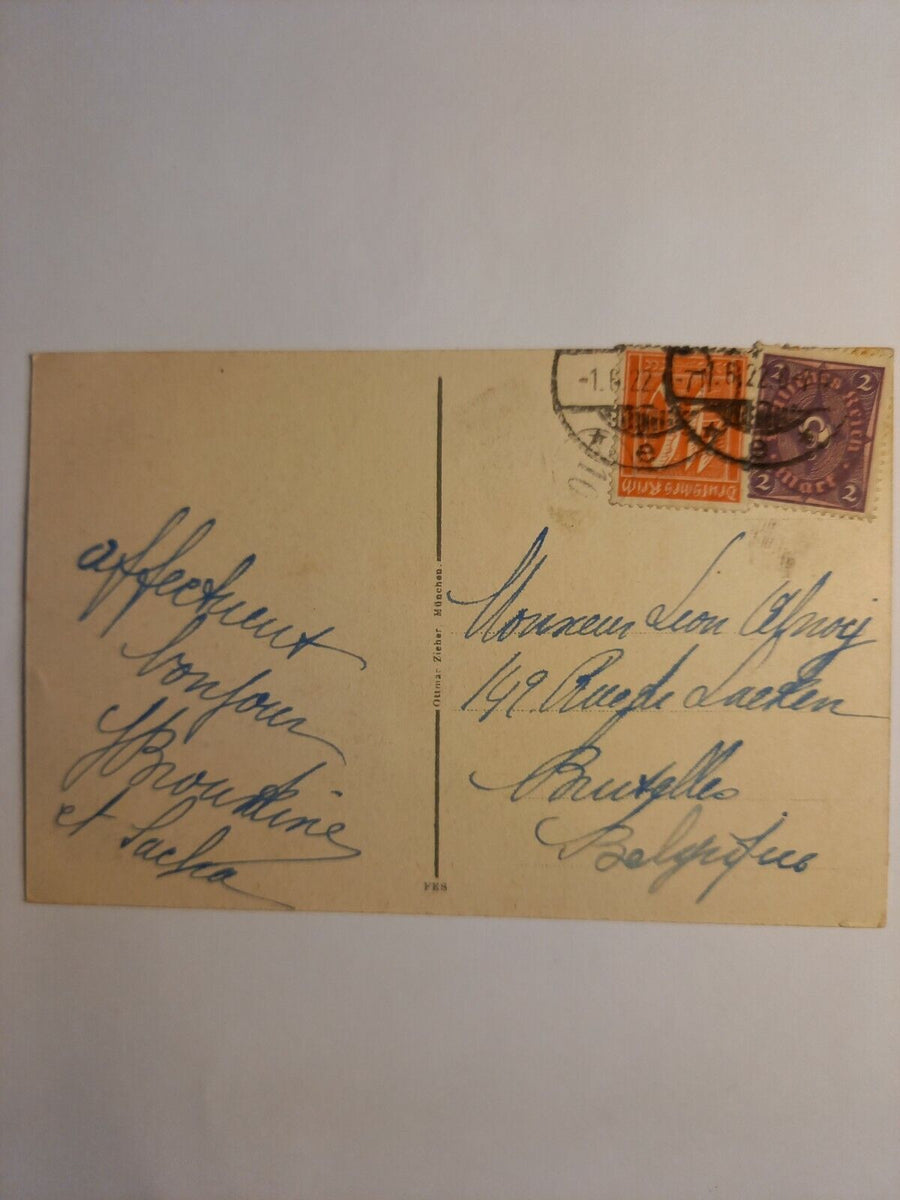 affectueux
bonjour
et Sacha
Ottmar Zieher München.
FES
-1.6.22 7-
1.6.22
Deutsches Reich
2
2
Deutsches Reich
2 Mark 2
Monsieur Leon
149 Rue de Laeken
Bruxelles
Belgique